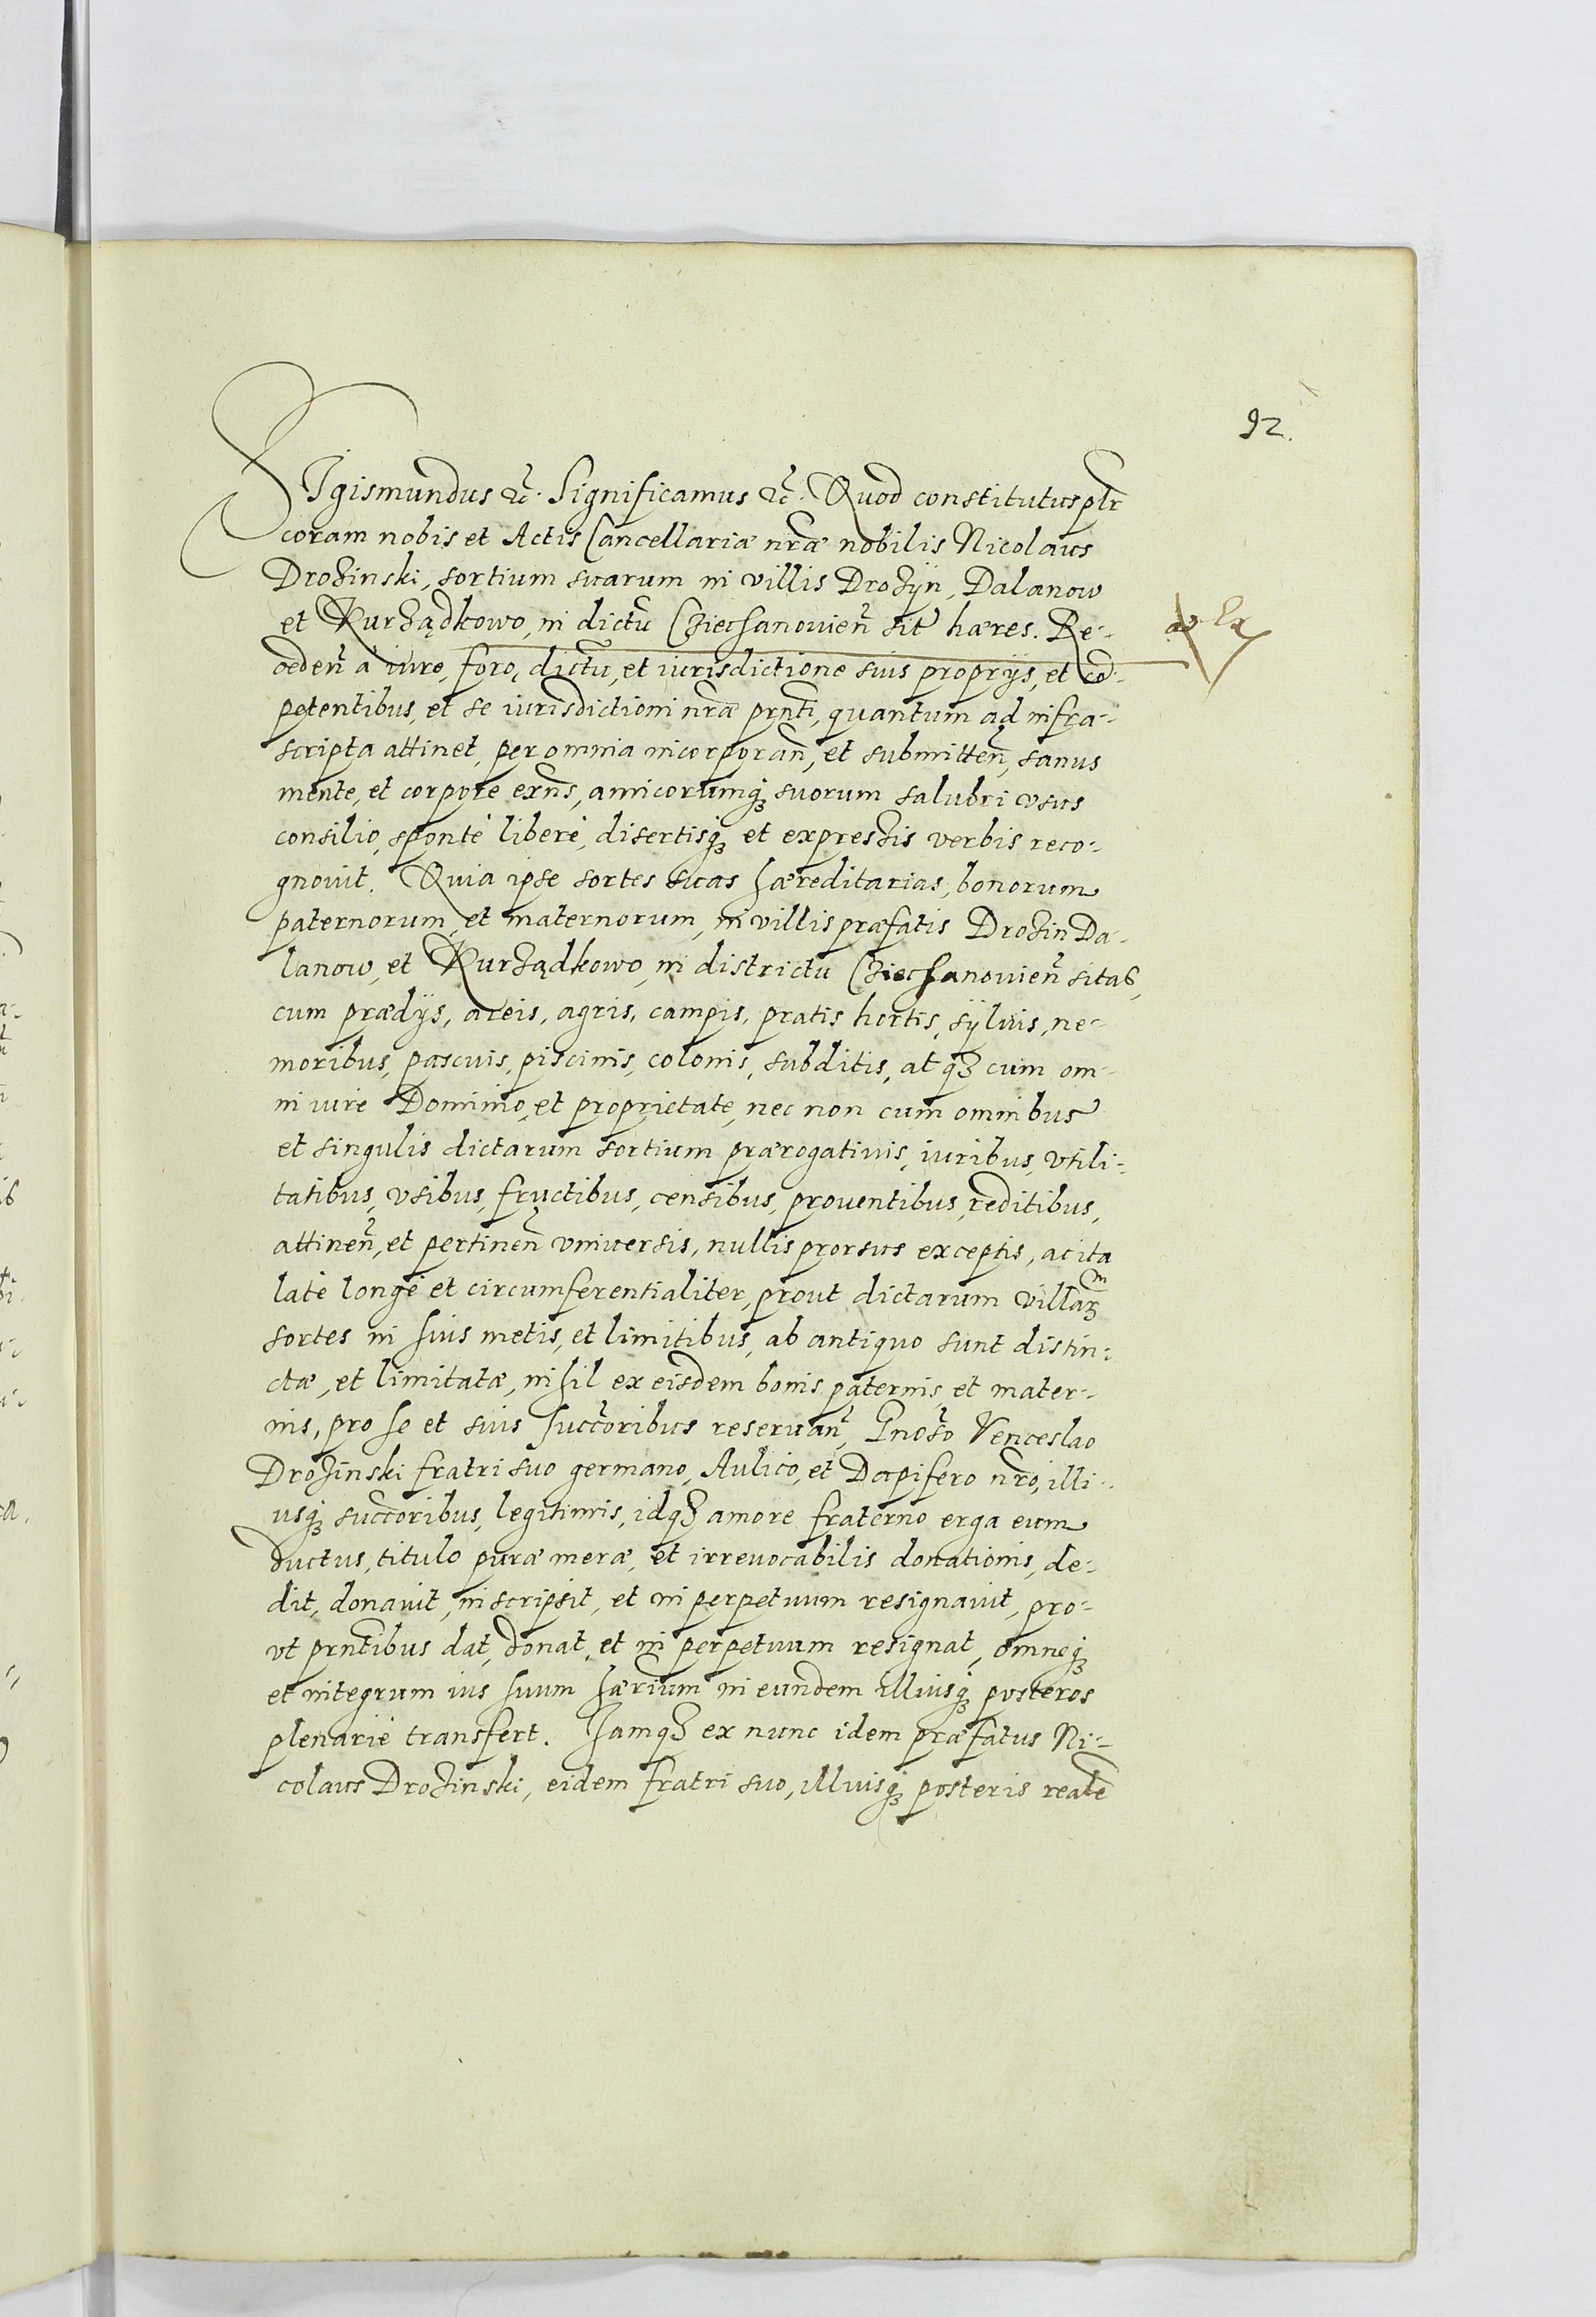 92.
Sigismundus &c̃. Significamus &c̃. Quod constitutus plr̃
coram nobis et Actis Cancellariæ nr̃æ nobilis Nicolaus
Drozinski, sortium suarum in villis Drozÿn, Dalanow
et Kurządkowo, in dictũ Cziechanouień sit hæres. Re-
cedeñ à iure, foro, dictũ, et iurisdictione suis proprijs, et cõ-
petentibus, et se iurisdictioni nr̃æ prñti, quantum ad infra-
scripta attinet, per omnia incorporañ, et submitteñ, sanus
mente, et corpore exñs, amicorumq3 suorum salubri vsus
consilio, sponte libere, disertisq3 et expressis verbis reco-
gnouit. Quia ipse sortes suas hæreditarias, bonorum
paternorum, et maternorum, in villis præfatis Drozin Da-
lanow, et Kurządkowo, in districtu Cziechanouień sitas,
cum prædijs, areis, agris, campis, pratis hortis, sÿluis, ne-
moribus, pascuis, piscinis, colonis, subditis, atq3 cum om-
ni iure Dominio, et proprietate, nec non cum omnibus
et singulis dictarum sortium prærogatiuis, iuribus, vtili-
tatibus, vsibus, fructibus, censibus, prouentibus, reditibus,
attineñ, et pertineñ vniuersis, nullis prorsus exceptis, ac ita
late longe et circumferentialiter, prout dictarum villarm
sortes in suis metis, et limitibus, ab antiquo sunt distin-
ctæ, et limitatæ, nihil ex eisdem bonis paternis, et mater-
nis, pro se et suis succ̃oribus reseruañ, Gnõso Venceslao
Drozinski fratri suo germano, Aulico, et Dapifero nr̃o, illi-
usq3 succ̃oribus, legitimis, idq3 amore fraterno erga eum
ductus, titulo puræ meræ, et irreuocabilis donationis, de-
dit, donauit, inscripsit, et in perpetuum resignauit, pro-
vt prñtibus dat, donat, et in perpetuum resignat, omneq3
et integrum ius suum hærĩum in eundem illiusq3 posteros
plenarie transfert. Jamq3 ex nunc idem præfatus Ni-
colaus Drozinski, eidem fratri suo, illiusq3 posteris realẽ